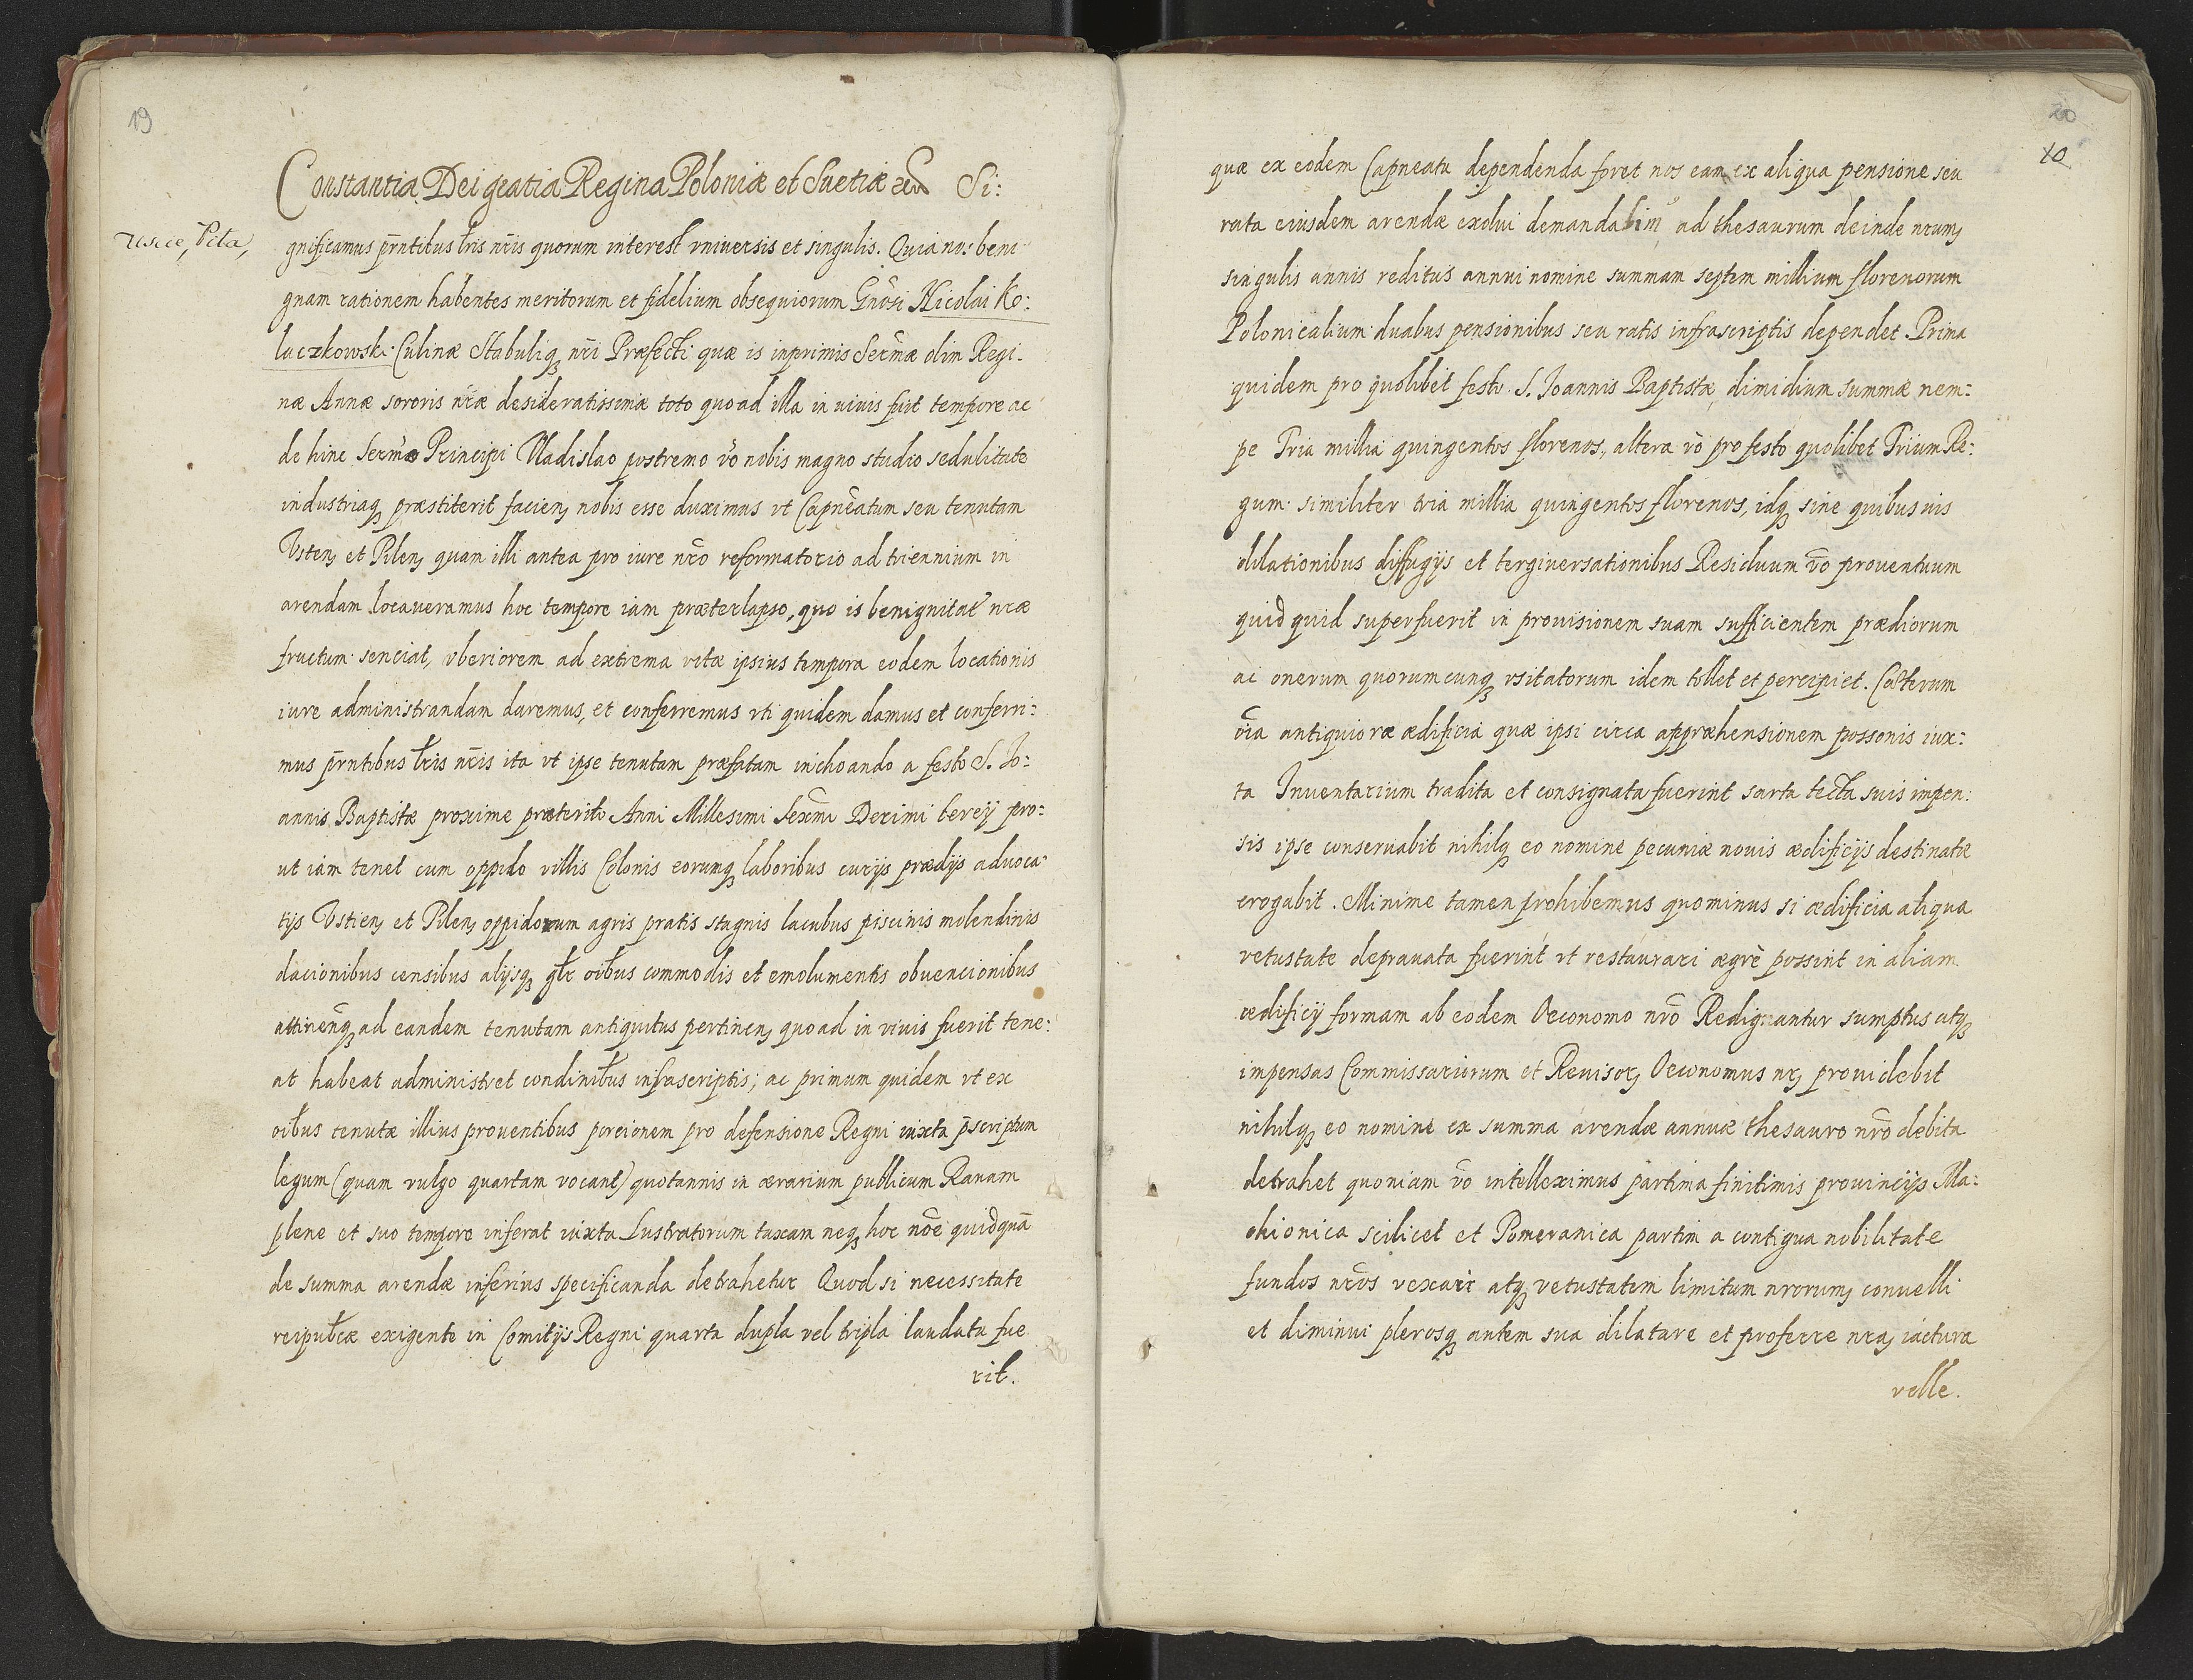 19
Constantia Dei gratia Regina Poloniæ et Suetiæ etc Si:
Uscie, Pila,
gnificamus p̄rntibus l̄ris nr̄is quorum interest vniuersis et singulis. Quia nos beni
gnam rationem habentes meritorum et fidelium obsequiorum Gn̄osi Nicolai Ko:
luczkowski Culinæ Stabuliq̨ nr̄i Præfecti quæ is inprimis Serm̄æ olim Regi-
næ Annæ sororis nr̄æ desideratissimæ toto quoad illa in viuis fuit tempore ac
de hinc Serm̄o Principi Vladislao postremo v̄o nobis magno studio sedulitate
industriaq̨ præstiterit faciens nobis esse duximus vt Capneatum seu tenutam
Vstens et Pilens quam illi antea pro iure nr̄o reformatorio ad triennium in
arendam locaueramus hoc tempore iam præterlapso, quo is benignitat nr̄æ
fructum senciat, vberiorem ad extrema vitæ ipsius tempora eodem locationis
iure administrandam daremus, et conferremus vti quidem damus et conferri:
mus p̄rntibus l̄ris nr̄is ita vt ipse tenutam præfatam inchoando a festo S. Jo:
annis Baptistæ proxime præterito Anni Millesimi Sexmi Decimi tercij pro:
ut iam tenet cum oppido villis Colonis eorumq̨ laboribus curijs prædijs aduoca:
tijs Vstiens et Pilens oppidorum agris pratis stagnis lacubus piscinis molendinis
dacionibus censibus alijsq̨ gl̄r oīb̄us commodis et emolumentis obuencionibus
attinenq̨ ad eandem tenutam antiquitus pertinens quoad in viuis fuerit tene:
at habeat administret condinib̄us infrascriptis; ac primum quidem vt ex
oīb̄us tenutæ illius prouentibus porcionem pro defensione Regni iuxta p̄scriptum
legum (quam vulgo quartam vocant) quotannis in ærarium publicum Rauam
plene et suo tempore inferat iuxta Lustratorum taxam neq̨ hoc nōe quidquā
de summa arendæ inferius specificanda detrahetur Quod si necessitate
reipub̄cæ exigente in Comitijs Regni quarta dupla vel tripla laudata fue
rit.
20
10
quæ ex eodem Capneatu dependenda foret nos eam ex aliqua pensione seu
rata eiusdem arendæ exolui demandabim⁹ ad thesaurum deinde nrum
singulis annis reditus annui nomine summam septem millium florenorum
Polonicalium duabus pensionibus seu ratis infrascriptis dependet. Prima
quidem pro quolibet festo S. Joannis Baptistæ, dimidium summæ nem:
pe Tria millia quingentos florenos, altera v̄o pro festo quolibet Trium Re:
gum similiter tria millia quingentos florenos, idq̨ sine quibus uis
dilationibus diffugijs et tergiuersationibus Residuum v̄o prouentuum
quid quid superfuerit in prouisionem suam sufficientem prædiorum
ac onerum quorumcunq̨ vsitatorum idem tollet et percipiet. Cæterum
oīa antiquiora ædificia quæ ipsi circa appræhensionem possonis iux:
ta Inuentarium tradita et consignata fuerint sarta tecta suis impen:
sis ipse conseruabit nihilq̨ eo nomine pecuniæ nouis ædificijs destinatæ
erogabit. Minime tamen prohibemus quominus si ædificia aliqua
vetustate deprauata fuerint vt restaurari ægrè possint in aliam
ædificij formam ab eodem Oeconomo nr̄o Redigantur sumptus atq̨
impensas Commissariorum et Reuisor, Oeconomus nr, prouidebit
nihilq̨ eo nomine ex summa arendæ annuæ thesauro nr̄o debita
detrahet quoniam v̄o intelleximus partim a finitimis prouincijs Ma:
chionica scilicet et Pomeranica partim a contigua nobilitate
fundos nr̄os vexari atq̨ vetustatem limitum nrorum, conuelli
et diminui plerosq̨ autem sua dilatare et proferre nra, iactura
velle.